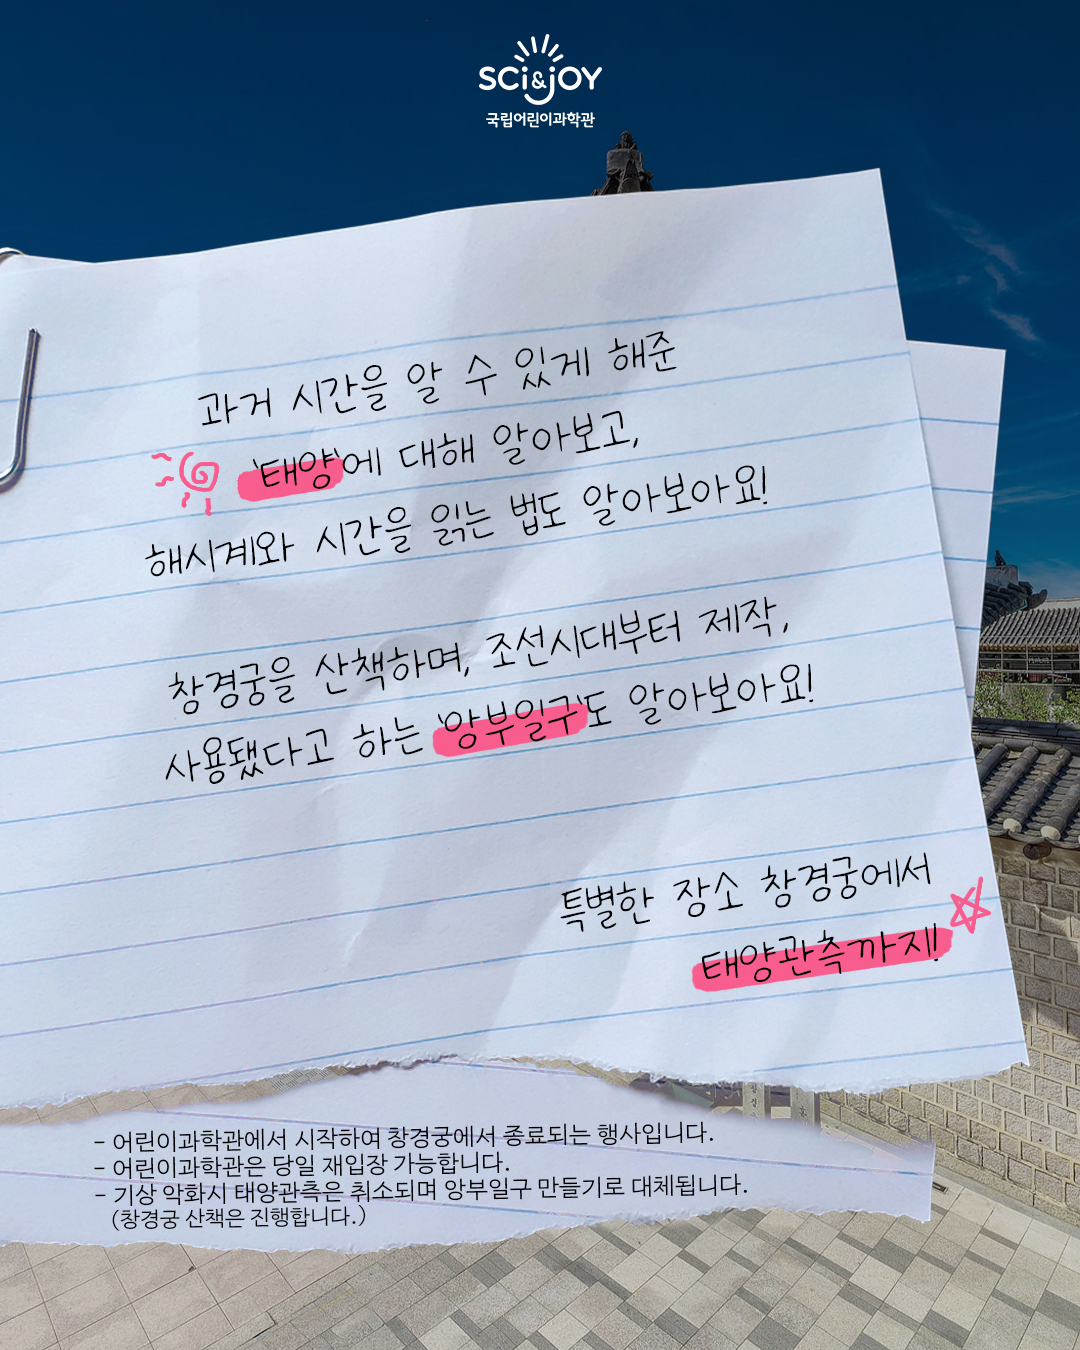 SCi&jOY
국립어린이과학관
과거 시간을 알 수 있게 해준
'태양'에 대해 알아보고,
해시계와 시간을 읽는 법도 알아보아요!
창경궁을 산책하며, 조선시대부터 제작,
사용됐다고 하는 '앙부일구'도 알아보아요!
특별한 장소 창경궁에서
태양관측까지!
- 어린이과학관에서 시작하여 창경궁에서 종료되는 행사입니다.
- 어린이과학관은 당일 재입장 가능합니다.
- 기상 악화시 태양관측은 취소되며 앙부일구 만들기로 대체됩니다.
(창경궁 산책은 진행합니다.)